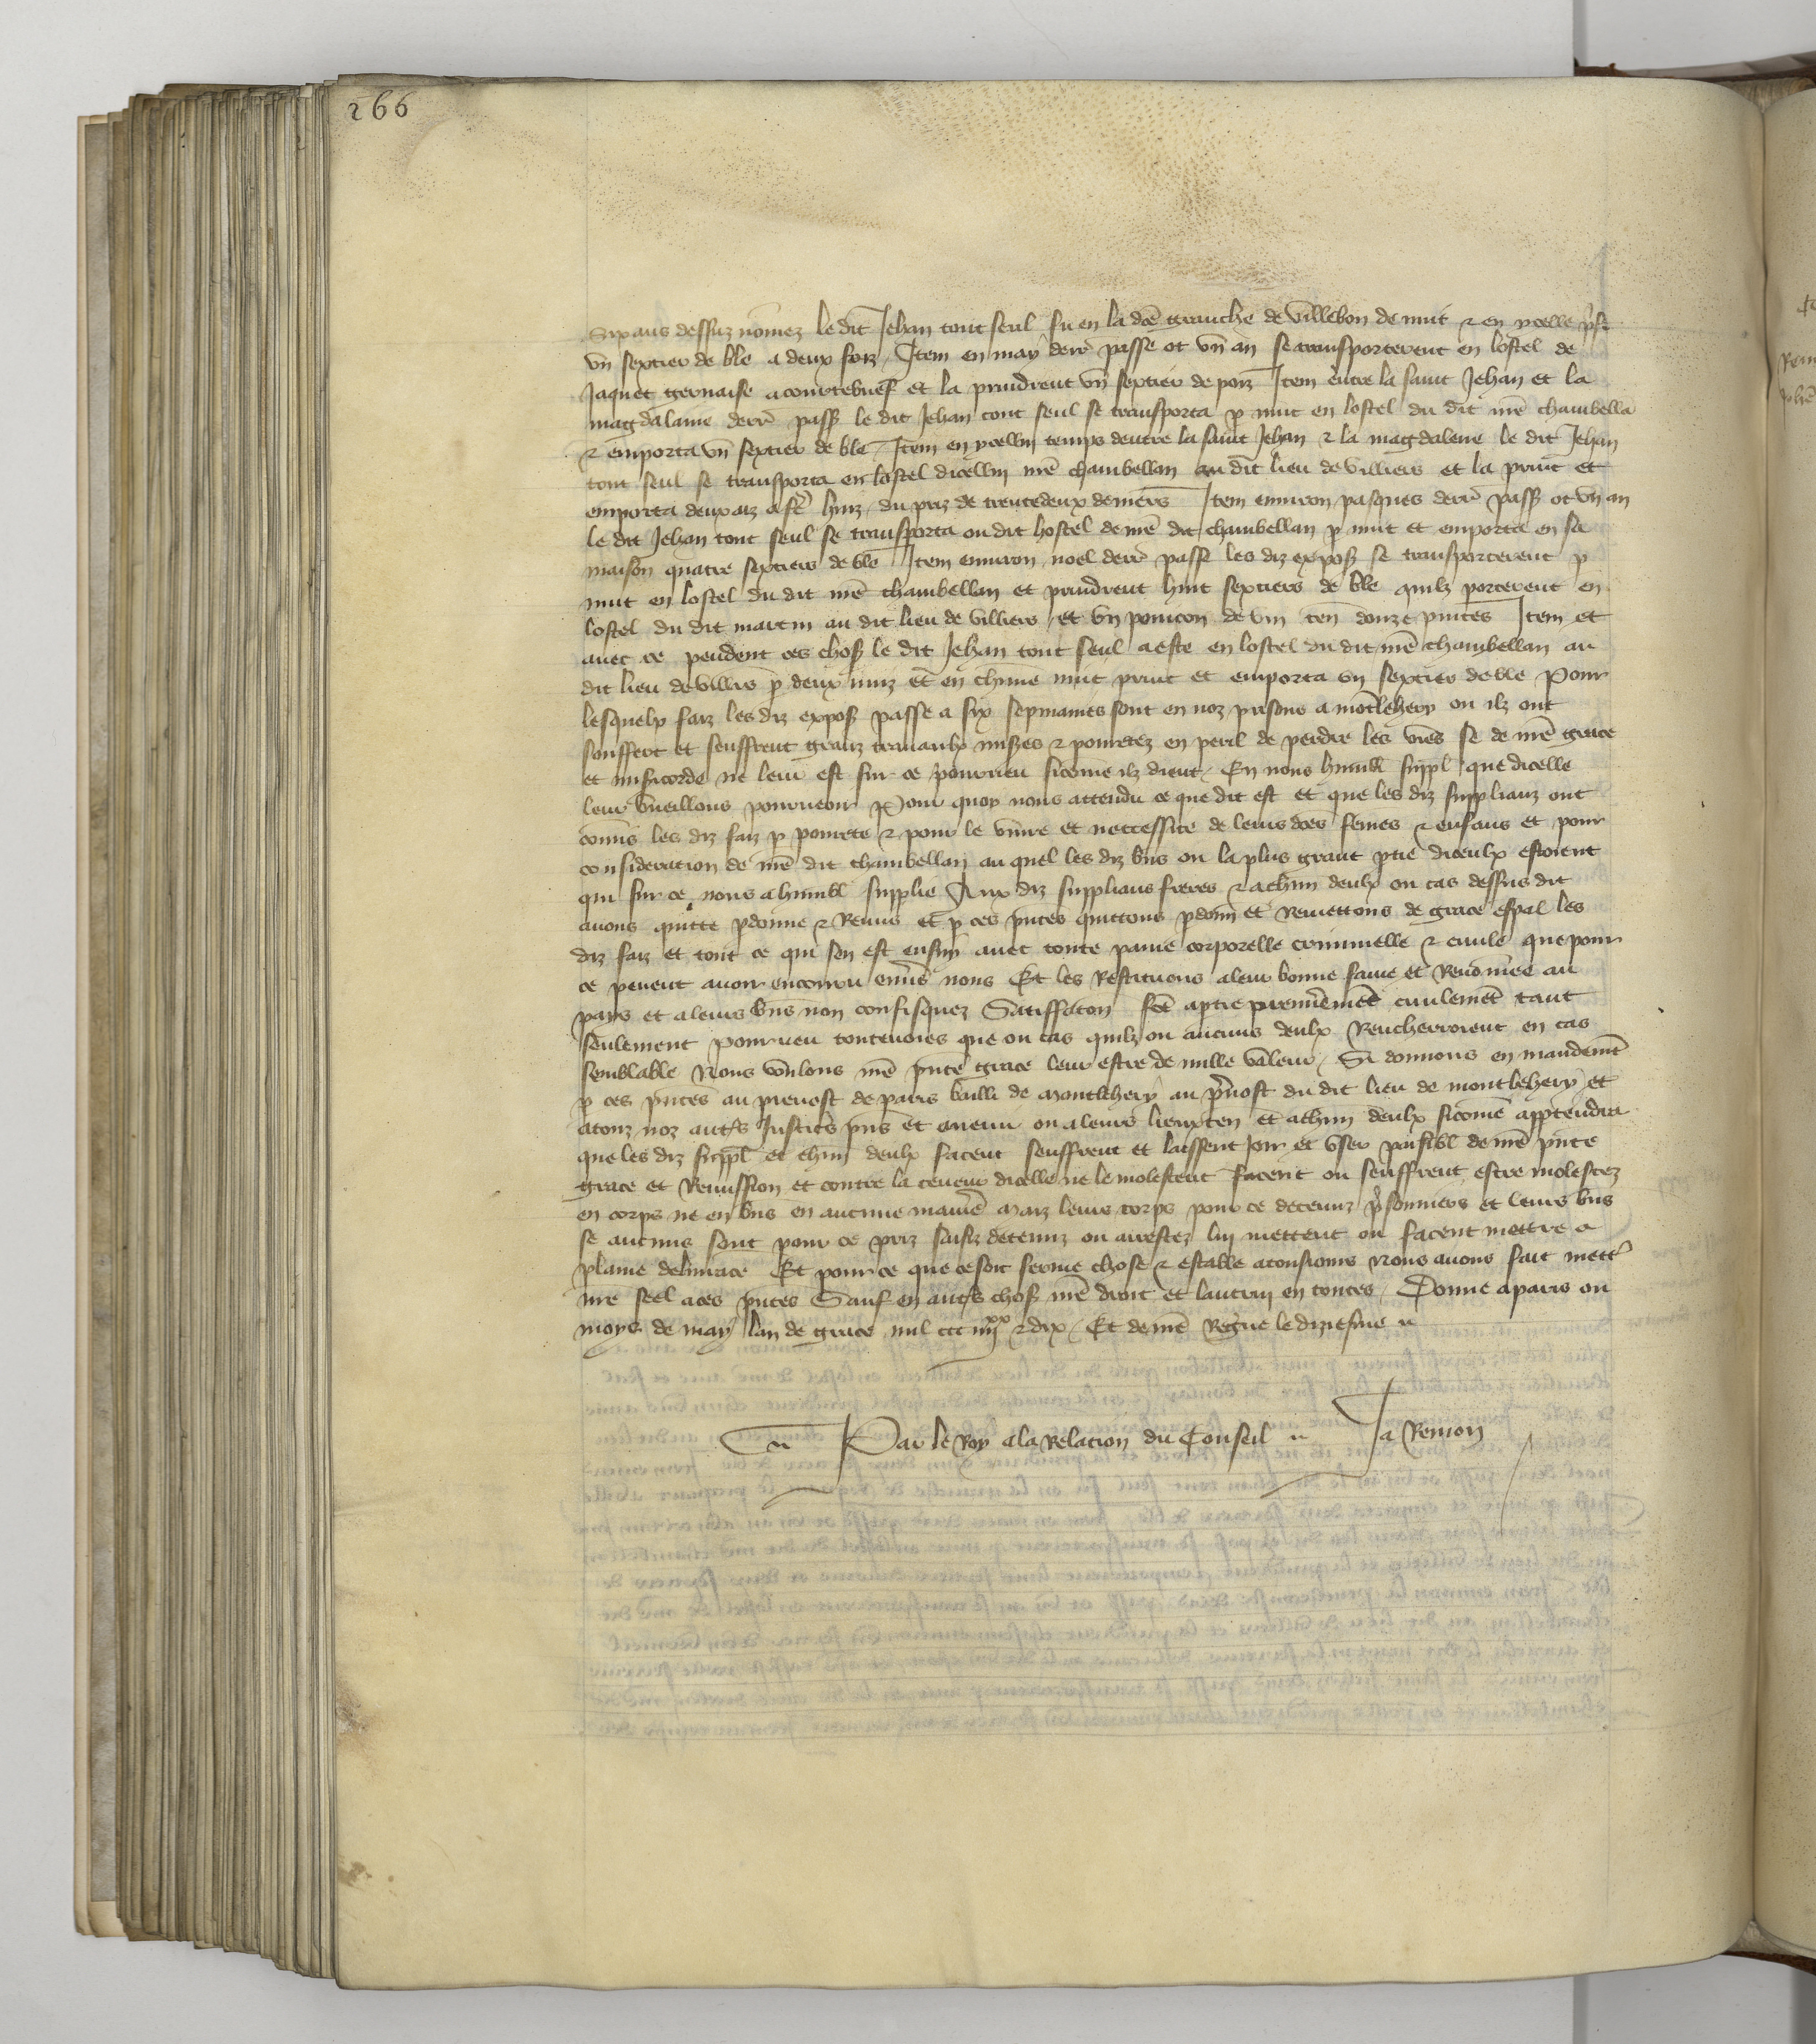 266
Six ans dessuz nōmez le dit Jehan tout seul fu en la dce granche de villebon de nuit & en ycelle prist
vn sextier de ble a deux foiz / Item en may derr passe ot vn an se transporterent en lostel de
Jaquet geruaise a courtebuef et la prindrent vn sextier de poiz Item entre la saint Jehan et la
magdalaine derr pass le dit Jehan tout seul se transporta p nuit en lostel du dit nrē chambella
& emporta vn sextier de ble / Item en ycellui temps dentre la saint Jehan & la magdalene le dit Jehan
tout seul se transporta en lostel dicellui nrē chambellan au dit lieu de villiers et la print et
emporta deux aiz a fe huiz du priz de trente deux deniers Item enuiron pasques derr pass ot vn an
le dit Jehan tout seul se transporta ou dit hostel de nrē dit chambellan p nuit et emporta en sa
maison quatre sextiers de ble Item enuiron noel derr passe les diz expos se transporterent p
nuit en lostel du dit nrē chambellan et prindrent huit sextiers de ble quilz porterent en
lostel du dit martin au dit lieu de villiers / et vn poincon de vin ten douze pintes Item et
auec ce pendent ces chos le dit Jehan tout seul a este en lostel du dit nrē chambellan au
dit lieu de villiers p deux nuiz et en chūne nuit print et emporta vn sextier de ble Pour
lesquelx faiz les diz expos passe a six sepmaines sont en noz prisons a montlehery ou ilz ont
souffert et seuffrent granz trauaulx mises & pouretez en peril de perdre les vies se de nrē grace
et misicorde ne leur est sur ce pourueu sicōme ilz dient / En nous humbl suppl que dicelle
leur vueillons pourueoir Pour quoy nous attendu ce que dit est et que les diz supplianz ont
cōmis les diz faiz p pourete & pour le viure et neccessite de leurs dces fēmes & enfans et pour
consideracion de nrē dit chambellan au quel les diz biēs ou la plus grant ptie diceulx estoient
qui sur ce nous a humbl supplie Aux diz supplians freres & a chūn deulx ou cas dessus dit
auons quitte pdonne & Remis et p ces pntes quittons pdonn et Remettons de grace espal les
diz faiz et tout ce qui sen est ensuy auec toute paine corporelle criminelle & ciuile que pour
ce peuent auoir encouru enuers nous Et les Restituons a leur bonne fame et Renōmee au
pays et a leurs biēs non confisquez Satiffacion fcē a ptie premieremēt ciuilemēt tant
seulement pourueu toutevoies que ou cas quilz ou aucuns deulx Rencherroient en cas
semblable Nous voulons nrē pnte grace leur estre de nulle valeur / Si donnons en mandemēt
p ces pntes au preuost de paris bailli de montlehery au preuost du dit lieu de montlehery et
a touz noz autrs Justic pns et auenir ou a leurs lieuxten et a chūn deulx sicōme apptendra
que les diz suppl et chūn deulx facent seuffrent et laissent Joir et vser paisibl de nrē pnte
grace et Remission et contre la teneur dicelle ne le molestent facent ou seuffrent estre molestez
en corps ne en biēs en aucune maniē maiz leurs corps pour ce detenuz prisonniers et leurs biēs
se aucuns sont pour ce priz saisiz detenuz ou arrestez lui mettent ou facent mettre a
plaine deliurace Et pour ce que ce soit ferme chose & estable a tousioursmais Nous auons fait mettr
nre seel a ces pntes Sauf en autrs chos nrē droit et lautruy en toutes / Donne a paris ou
moys de may lan de grace mil ccc iiij xx & dix / Et de nrē Regne le diziesme
Par le Roy a la Relacion du Conseil Ja Remon